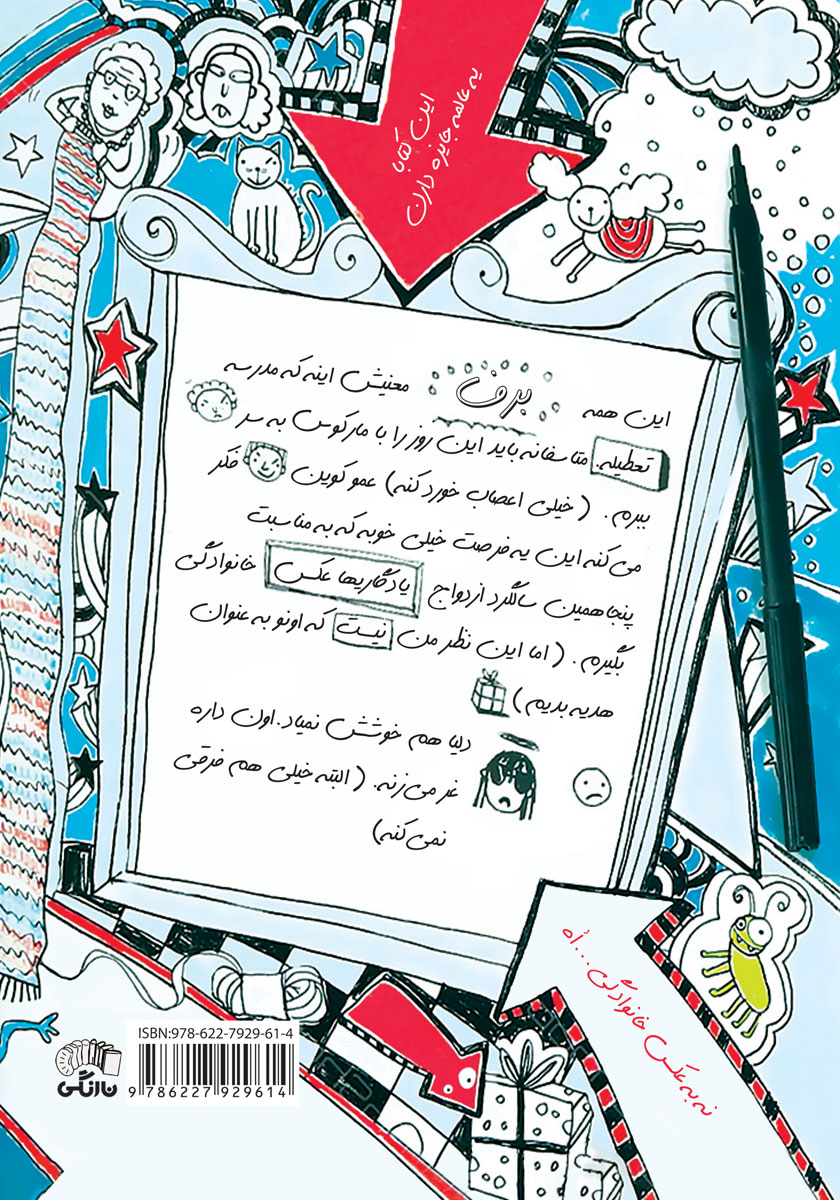 این کتابا
یه عالمه جایزه دارن
این همه برف معنیش اینه که مدرسه
تعطیله. متاسفانه باید این روز را با مارکوس به سر
ببرم. (خیلی اعصاب خورد کنه) عمو کوین فکر
می کنه این یه فرصت خیلی خوبه که به مناسبت
پنجاهمین سالگرد ازدواج یادگاریها عکس خانوادگی
بگیرم. (اما این نظر من نیست که اونو به عنوان
هدیه بدیم)
دلیا هم خوشش نمیاد. اون داره
غر می زنه. (البته خیلی هم فرقی
نمی کنه)
نه به عکس خانوادگی...اَه
ISBN:978-622-7929-61-4
9 786227 929614
نارنگی